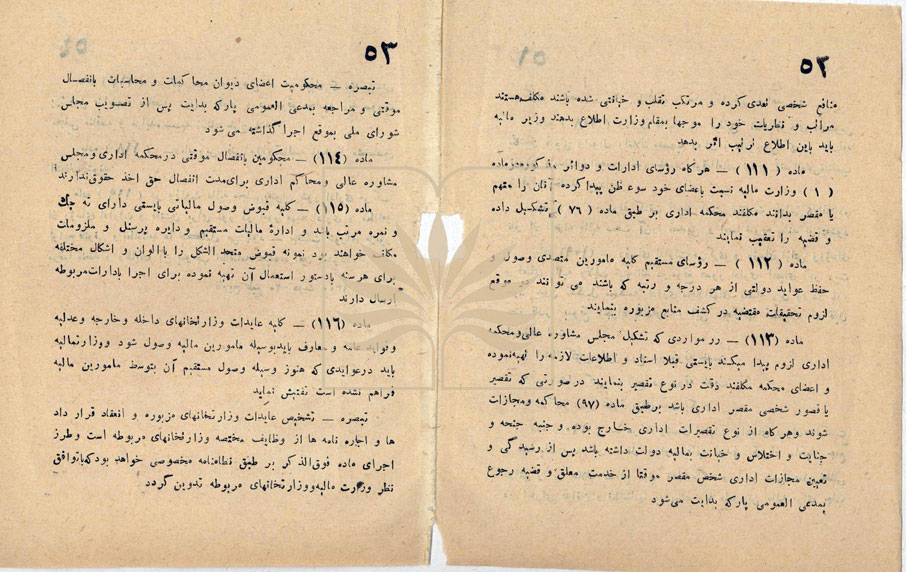 ۵۲
منافع شخصی تعدی کرده و مرتکب تقلب و خیانتی شده باشند مکلف هستند
مراتب و نظریات خود را موجها بمقام وزارت اطلاع بدهند وزیر مالیه
باید باین اطلاع ترتیب اثر بدهد
ماده (۱۱۱) – هرگاه رؤسای ادارات و دوائر مذکوره در ماده
(۱) وزارت مالیه نسبت باعضای خود سوء ظن پیدا کرده آنان را متهم
یا مقصر بدانند مکلفند محکمه اداری بر طبق ماده (۷۶) تشکیل داده
و قضیه را تعقیب نمایند
ماده (۱۱۲) – رؤسای مستقیم کلیه مامورین متصدی وصول و
حفظ عواید دولتی از هر درجه و رتبه که باشند می توانند در موقع
لزوم تحقیقات مقتضیه در کشف منابع مزبوره بنمایند
ماده (۱۱۳) – در مواردی که تشکیل مجلس مشاوره عالی و محکمه
اداری لزوم پیدا میکند بایستی قبلا اسناد و اطلاعات لازمه را تهیه نموده
و اعضای محکمه مکلفند دقت در نوع تقصیر بنمایند در صورتی که تقصیر
یا قصور شخصی مقصر اداری باشد بر طبق ماده (۹۷) محاکمه و مجازات
شوند و هر گاه از نوع تقصیرات اداری خارج بوده و جنبه جنحه و
جنایت و اختلاس و خیانت بمالیه دولت داشته باشد پس از رسیدگی و
تعیین مجازات اداری شخص مقصر موقتا از خدمت معلق و قضیه رجوع
بمدعی العمومی پارکه بدایت می شود
۵۳
تبصره – محکومیت اعضای دیوان محاکمات و محاسبات بانفصال
موقتی و مراجعه بمدعی العمومی پارکه بدایت پس از تصویب مجلس
شورای ملی بموقع اجرا گذاشته می شود
ماده (۱۱۴) – محکومین بانفصال موقتی در محکمه اداری و مجلس
مشاوره عالی و محاکم اداری برای مدت انفصال حق اخذ حقوق ندارند
ماده (۱۱۵) – کلیه قبوض وصول مالیاتی بایستی دارای ته چك
و نمره مرتب باشد و اداره مالیات مستقیم و دایره پرسنل و ملزومات
مکلف خواهند بود نمونه قبوض متحد الشکل را با الوان و اشکال مختلفه
برای هر سنه با دستور استعمال آن تهیه نموده برای اجرا بادارات مربوطه
ارسال دارند
ماده (۱۱۶) – کلیه عایدات وزارتخانهای داخله و خارجه و عدلیه
و فواید عامه و معارف باید بوسیله مامورین مالیه وصول شود و وزارت مالیه
باید در عوایدی که هنوز وسیله وصول مستقیم آن بتوسط مامورین مالیه
فراهم نشده است تفتیش نماید
تبصره – تشخیص عایدات وزارتخانهای مزبوره و انعقاد قرار داد
ها و اجاره نامه ها از وظایف مختصه وزارتخانهای مربوطه است و طرز
اجرای ماده فوق الذکر بر طبق نظامنامه مخصوصی خواهد بود که با توافق
نظر وزارت مالیه و وزارتخانهای مربوطه تدوین گردد